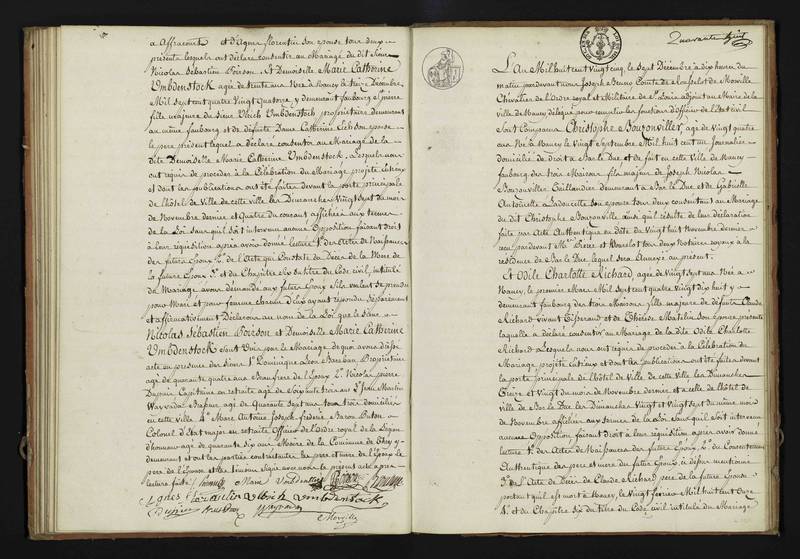 a Affracourt et d'Agnes florentin son epouse tous deux
presents lesquels ont déclaré consentir au Mariage du dit Sieur
Nicolas Sébastien Poirson. Et Demoiselle Marie Catherine
Umbdenstock agée de trente ans Née à Nancy le treize Décembre
Mil Sept cent quatre Vingt Quatorze y demeurant faubourg St pierre
fille majeure du Sieur Ulrich Umbdenstock propriétaire demeurant
au même faubourg et de défunte Dame Catherine son epouse
le père présent lequel a déclaré consentir au Mariage de la
dite Demoiselle Marie Catherine Umbdenstock. Lesquels nous
ont requis de procéder à la Célébration du Mariage projeté entr'eux
et dont les publications ont été faites devant la porte principale
de l'hôtel de Ville de cette ville les Dimanches Vingt Sept du mois
de Novembre dernier et Quatre du courant affichées aux termes
de la Loi sans qu'il soit intervenu aucune Opposition faisant droit
à leur réquisition après avoir donné lecture 1° des Actes de Naissance
des futurs Epoux 2° de l'Acte qui Constate du Décès de la Mère de
la future Epouse 3° et du Chapitre six du titre du Code civil, intitulé
du Mariage avons demandé aux futurs Epoux s'ils veulent se prendre
pour Mari et pour femme chacun d'eux ayant répondu séparément
et affirmativement Déclarons au nom de la Loi que le Sieur
Nicolas Sébastien Poirson et Demoiselle Marie Catherine
Umbdenstock sont Unis par le Mariage de quoi avons dressé
acte en présence des Sieurs 1° Dominique Léon Propriétaire
agé de quarante quatre ans Beaufrère de l'Epoux 2° Nicolas pierre
Capitaine en retraite agé de Soixante trois ans 3° Jean Martin
agé de Quarante Sept ans tous trois domiciliés
en cette ville 4° Marc Antoine Joseph frédéric Baron Buton
Colonel d'Etat major en retraite Officier de l'Ordre royal de la Légion
d'honneur agé de quarante dix ans Maire de la Commune de
demeurant et ont les parties contractantes les père et mère de l'Epoux le
père de l'Epouse et les témoins Signé avec nous le présent acte après
lecture faite.
Agnes florentin Ulrich Umbdenstock
Morville
Quarante huit
L'An Mil huit cent Vingt cinq, le Sept Décembre à dix heures du
matin pardevant nous Joseph Benoy Comte de Morville
Chevalier de l'Ordre royal et Militaire de St Louis adjoint au Maire de la
ville de Nancy délégué pour remplir les fonctions d'Officier de l'Etat civil
Sont Comparus Christophe Bouzonviller, agé de Vingt quatre
ans Né à Nancy le Vingt Septembre Mil huit cent un journalier
domicilié de Droit à Bar le Duc et de fait en cette Ville de Nancy
faubourg des trois Maisons fils majeur de Joseph Nicolas
Bouzonviller Taillandier demeurant à Bar le Duc et de Gabrielle
Antoinette Ladoucette son epouse tous deux consentans au Mariage
du dit Christophe Bouzonville ainsi qu'il résulte de leur déclaration
faite par Acte Authentique en date du Vingt huit Novembre dernier
reçu pardevant Mes et tous deux Notaires royaux à la
résidence de Bar le Duc, lequel sera Annexé au présent.
Et Odile Charlotte Richard, agée de Vingt sept ans Née à
Nancy, le premier Mars Mil Sept cent quatre Vingt dix huit y
demeurant faubourg des trois Maisons fille majeure de défunt Claude
Richard vivant Tisserand et de Thérèse Matelin son epouse présente
laquelle a déclaré consentir au Mariage de la dite Odile Charlotte
Richard. Lesquels nous ont requis de procéder à la Célébration du
Mariage projeté entr'eux et dont les publications ont été faites devant
la porte principale de l'hôtel de Ville de cette ville les Dimanches
Treize et Vingt du mois de Novembre dernier et à celle de l'hôtel de
Ville de Bar le Duc les Dimanches Vingt et Vingt sept du même mois
de Novembre affichées aux termes de la Loi sans qu'il soit intervenu
aucune Opposition faisant droit à leur réquisition après avoir donné
lecture 1° des Actes de Naissance des futurs Epoux, 2° du Consentement
Authentique des père et mère du futur Epoux, ci dessus mentionné
3° de l'Acte de Décès de Claude Richard père de la future Epouse
portant qu'il est mort à Nancy, le Vingt février Mil huit cent Onze
4° et du Chapitre Six du titre du Code civil intitulé du Mariage